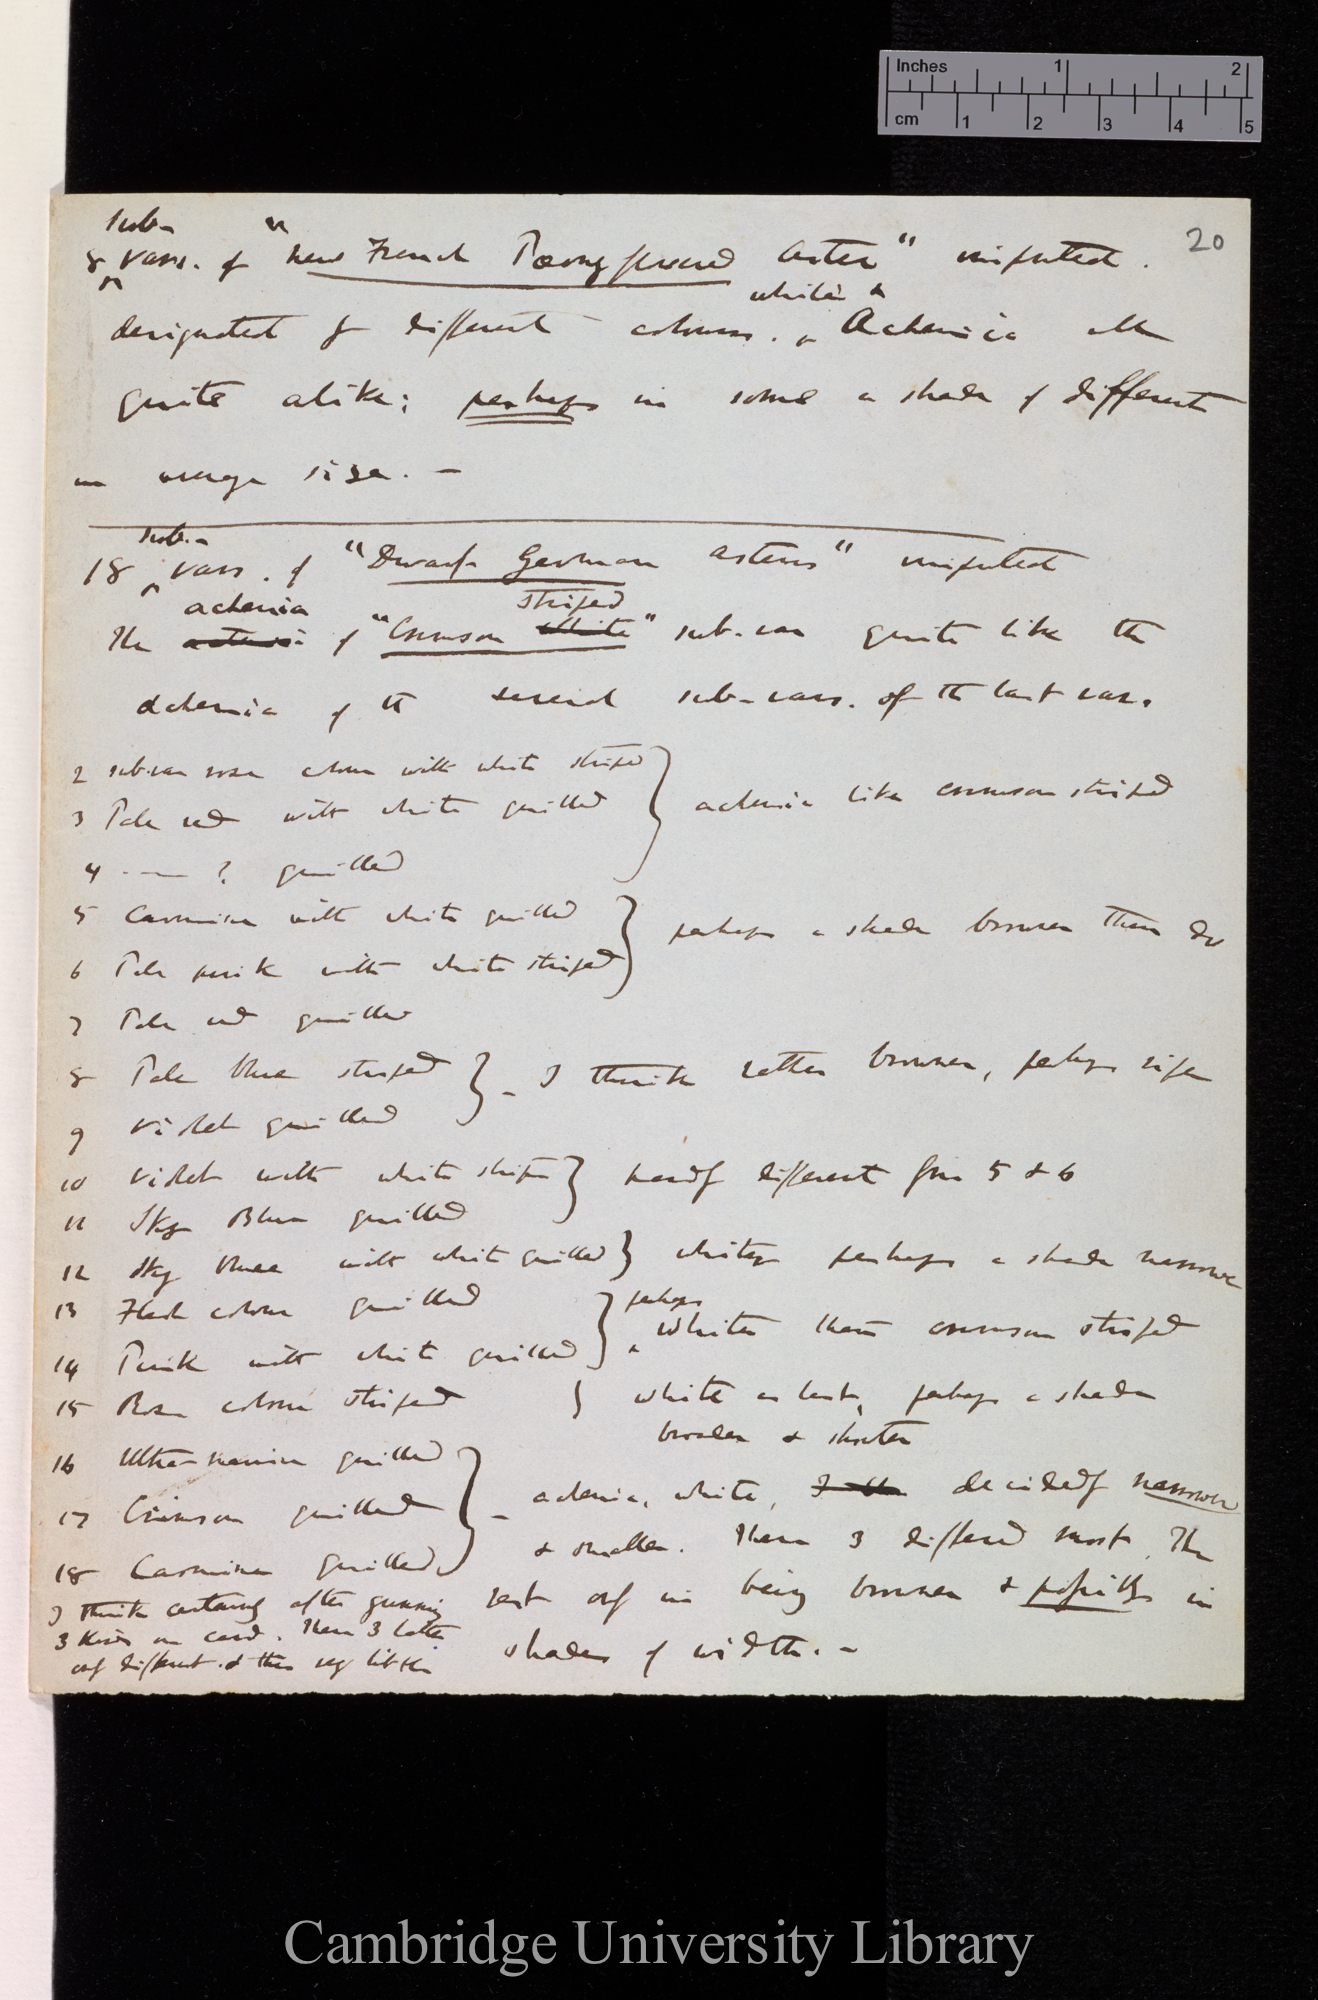 Inches 1 2
cm 1 2 3 4 5
20
sub-
8 vars. of "new French Pæony flowered Aster" imported.
white &
designated of different colours. Achenia all
quite alike; perhaps in some a shade of different
in average size. —
sub-
18 vars. of "Dwarf German asters" imported
achenia striped
The of "Crimson White" sub-var quite like the
achenia of the several sub-vars. of the last var.
2 sub-var rose colour with white striped
3 Pale red with white quilled
achenia like crimson striped
4 — ? quilled
5 Carmine with white quilled
perhaps a shade browner than do
6 Pale pink with white striped
7 Pale red quilled
8 Pale blue striped
- I think rather browner, perhaps
9 Violet quilled
10 Violet with white stripe
hardly different from 5 & 6
11 Sky Blue quilled
12 Sky blue with white quilled
whity perhaps a shade narrower
13 Flesh colour quilled
perhaps
whiter than crimson striped
14 Pink with white quilled
15 Rose colour striped
white as last, perhaps a shade
broader & shorter
16 Ultra-marine quilled
17 Crimson quilled
- achenia, white, decidedly narrower
18 Carmine quilled
& smaller. These 3 differed most. The
rest only in being browner & possibly in
shades of width. —
I think certainly after gumming
3 kinds on card. These 3 latter
only different & then very little
Cambridge University Library